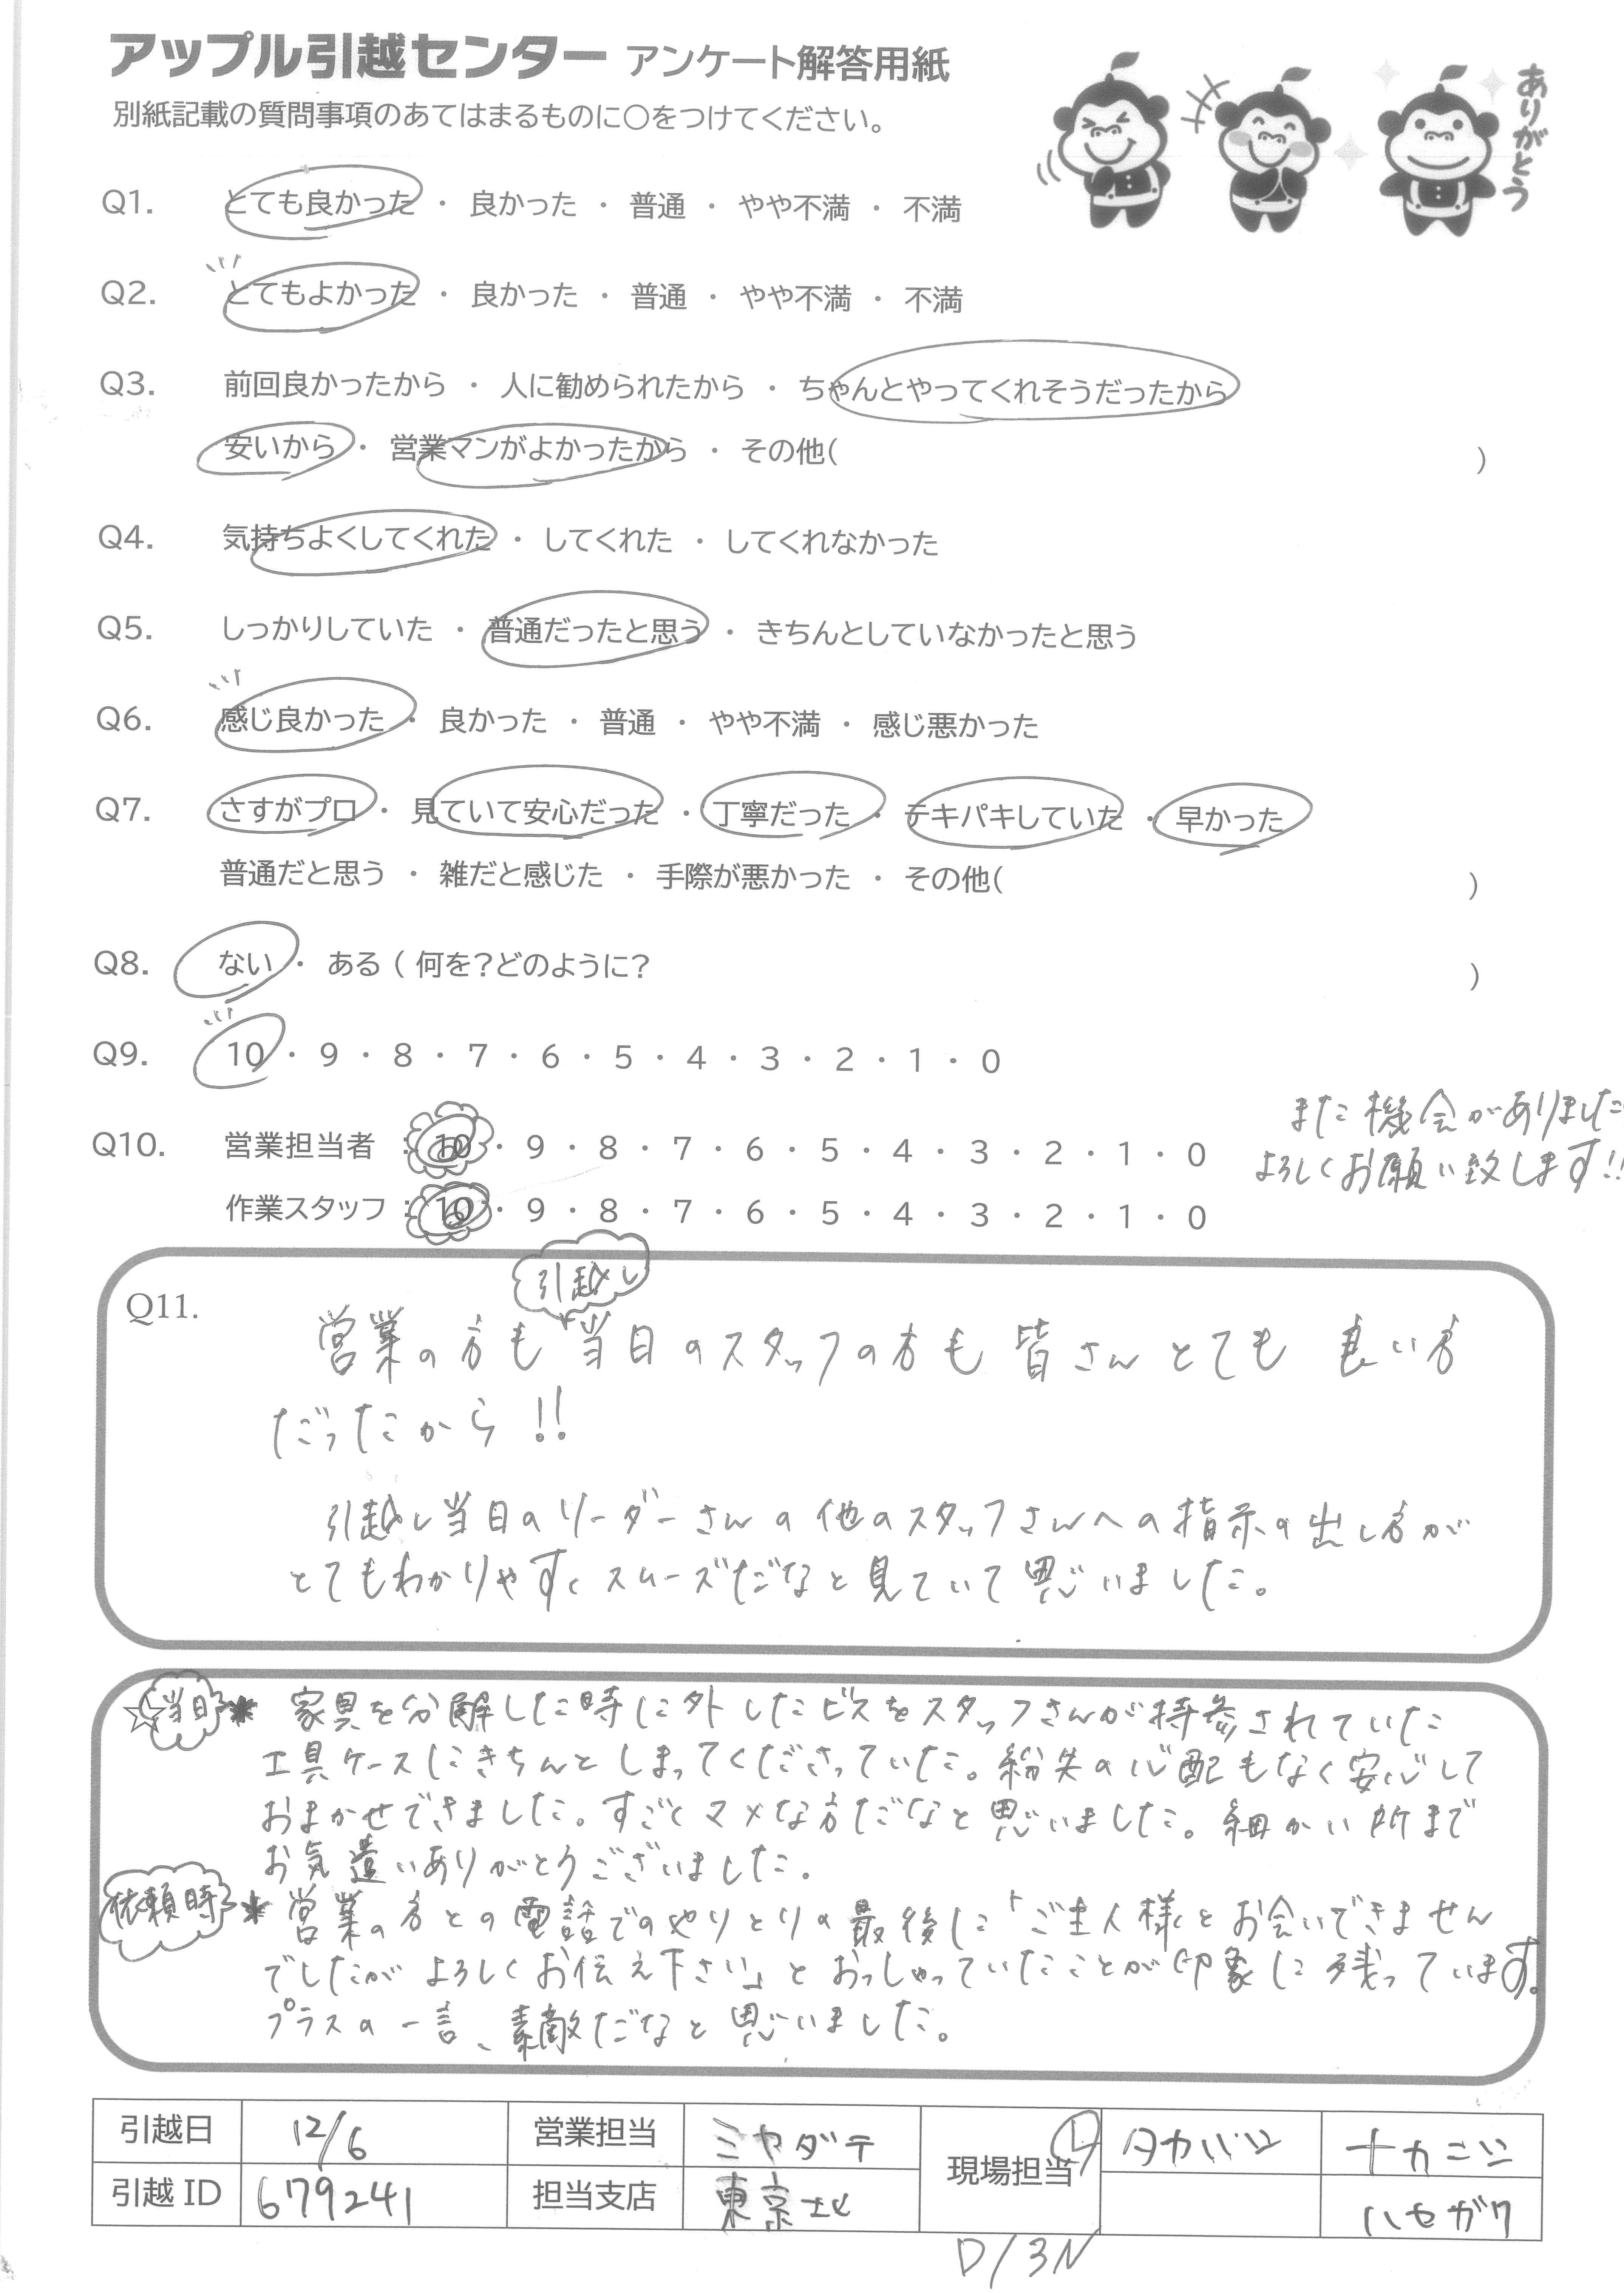 アップル引越センター アンケート解答用紙
別紙記載の質問事項のあてはまるものに〇をつけてください。
ありがとう
Q1. とても良かった ・ 良かった ・ 普通 ・ やや不満 ・ 不満
Q2. とてもよかった ・ 良かった ・ 普通 ・ やや不満 ・ 不満
Q3. 前回良かったから ・ 人に勧められたから ・ ちゃんとやってくれそうだったから
安いから ・ 営業マンがよかったから ・ その他( )
Q4. 気持ちよくしてくれた ・ してくれた ・ してくれなかった
Q5. しっかりしていた ・ 普通だったと思う ・ きちんとしていなかったと思う
Q6. 感じ良かった ・ 良かった ・ 普通 ・ やや不満 ・ 感じ悪かった
Q7. さすがプロ ・ 見ていて安心だった ・ 丁寧だった ・ テキパキしていた ・ 早かった
普通だと思う ・ 雑だと感じた ・ 手際が悪かった ・ その他( )
Q8. ない ・ ある ( 何を?どのように? )
Q9. 10 ・ 9 ・ 8 ・ 7 ・ 6 ・ 5 ・ 4 ・ 3 ・ 2 ・ 1 ・ 0
また機会がありました
よろしくお願い致します!!
Q10. 営業担当者 : 10 ・ 9 ・ 8 ・ 7 ・ 6 ・ 5 ・ 4 ・ 3 ・ 2 ・ 1 ・ 0
作業スタッフ : 10 ・ 9 ・ 8 ・ 7 ・ 6 ・ 5 ・ 4 ・ 3 ・ 2 ・ 1 ・ 0
Q11.
引越し
営業の方も当日のスタッフの方も皆さんとても良い方
だったから!!
引越し当日のリーダーさんの他のスタッフさんへの指示の出し方が
とてもわかりやすくスムーズだなと見ていて思いました。
☆当日 * 家具を分解した時に外したビスをスタッフさんが持参されていた
工具ケースにきちんとしまってくださっていた。紛失の心配もなく安心して
おまかせできました。すごくマメな方だなと思いました。細かい所まで
お気遣いありがとうございました。
依頼時 * 営業の方との電話でのやりとりの最後に「ご主人様とお会いできません
でしたがよろしくお伝え下さい」とおっしゃっていたことが印象に残っています。
プラスの一言、素敵だなと思いました。
引越日 12/6 営業担当 ミヤダテ 現場担当 Ⓛ タカハシ ナカニシ
引越ID 679241 担当支店 東京北 ハセガワ
D/3N